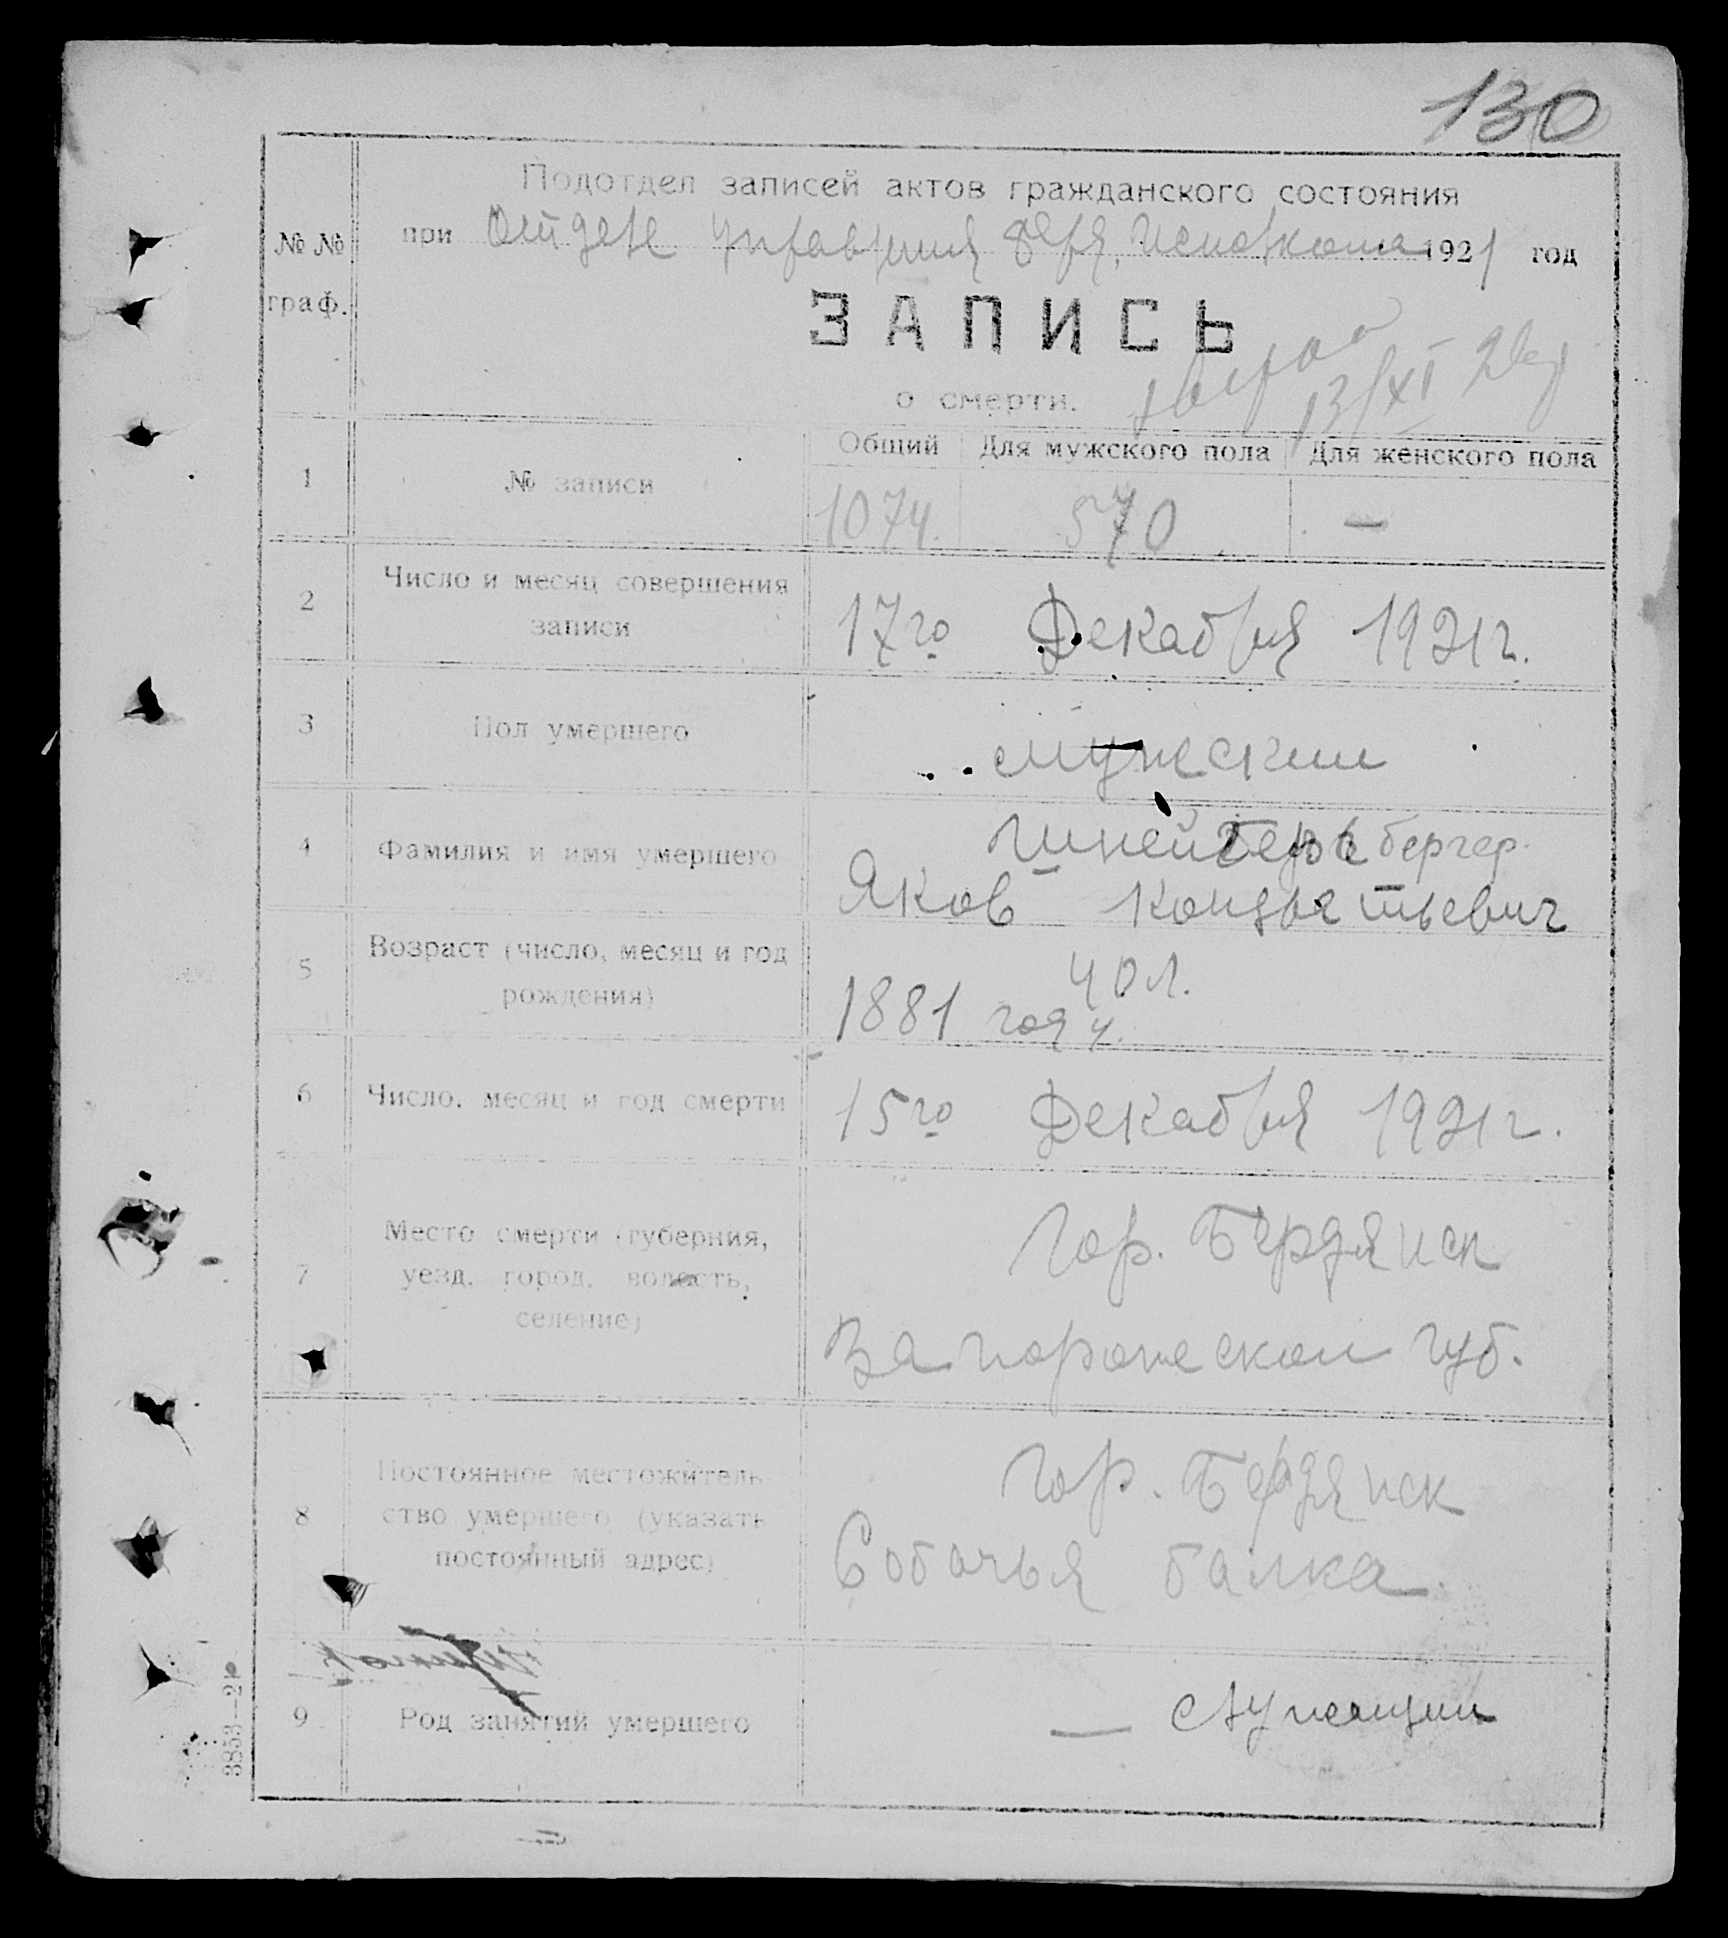 130
Подотдел записей актов гражданского состояния
при Отделе Управления Бердя, исполкома 1921 год
№ №
граф.
ЗАПИСЬ
о смерти.
13/XI
1
№ записи
Общий
Для мужского пола
Для женского пола
1074.
570
—
2
Число и месяц совершения
записи
17го Декабря 1921г.
3
Пол умершего
мужеский
4
Фамилия и имя умершего
Шней бергер.
Яков Кондратьевич
5
Возраст (число, месяц и год
рождения)
40 л.
1881 году.
6
Число, месяц и год смерти
15го Декабря 1921г.
7
Место смерти (губерния,
уезд, город, волость,
селение)
Гор. Бердянск
Запорожеской губ.
8
Постоянное местожитель-
ство умершего (указать
постоянный адрес)
Гор. Бердянск
Собачья балка
9
Род занятий умершего
— служащий
3853—21